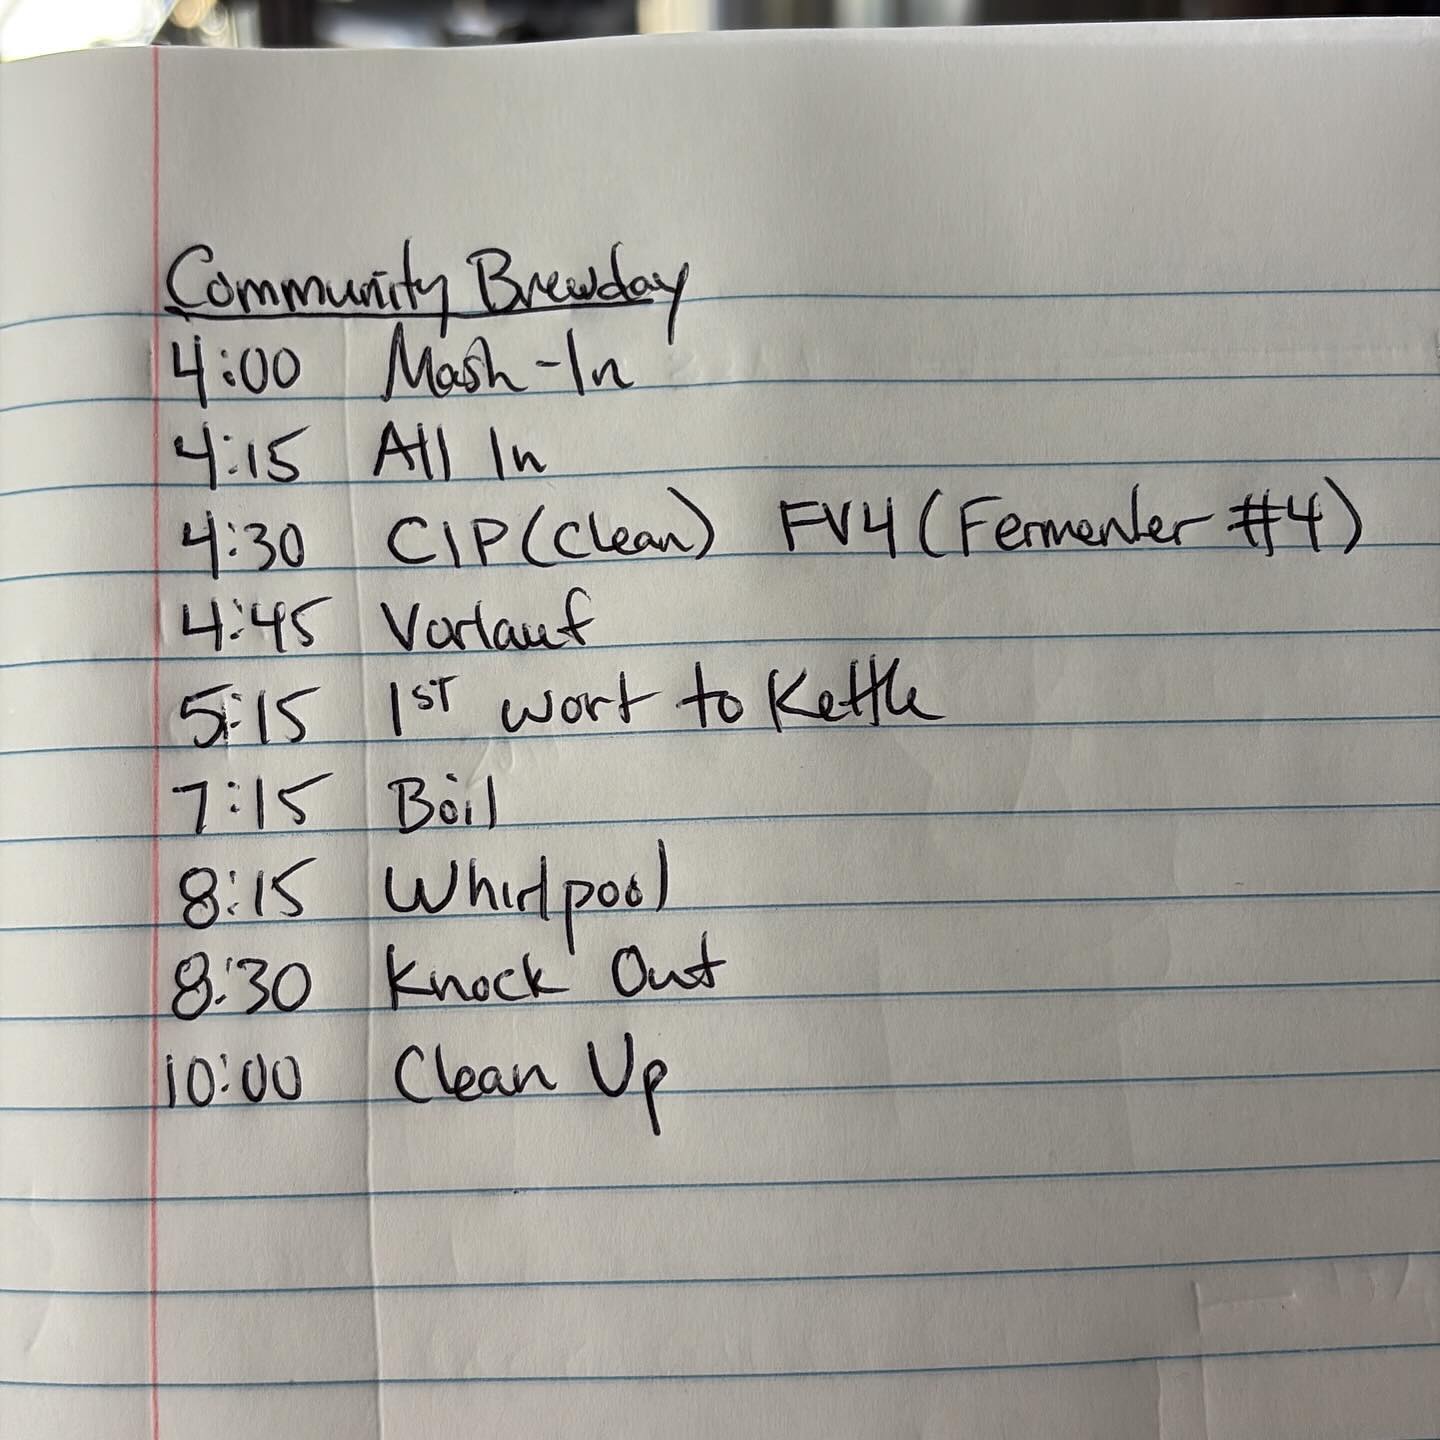 Community Brewday
4:00 Mash-In
4:15 All In
4:30 CIP (Clean) FV4 (Fermenter #4)
4:45 Vorlauf
5:15 1ST wort to Kettle
7:15 Boil
8:15 Whirlpool
8:30 Knock Out
10:00 Clean Up